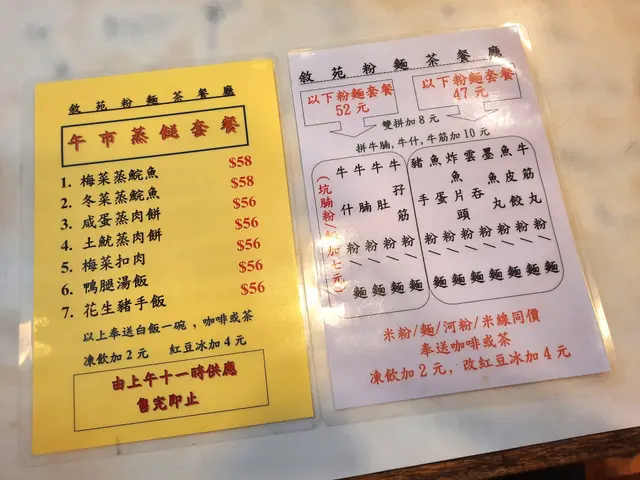 敘苑粉麵茶餐廳
午市蒸餸套餐
1. 梅菜蒸鯇魚 $58
2. 冬菜蒸鯇魚 $58
3. 咸蛋蒸肉餅 $56
4. 土魷蒸肉餅 $56
5. 梅菜扣肉 $56
6. 鴨腿湯飯 $56
7. 花生豬手飯 $56
以上奉送白飯一碗，咖啡或茶
凍飲加2元 紅豆冰加4元
由上午十一時供應
售完即止
敘苑粉麵茶餐廳
以下粉麵套餐
52元
以下粉麵套餐
47元
雙拼加8元
拼牛腩,牛什,牛筋加10元
(坑腩粉麵加七元)
牛什粉/麵
牛腩粉/麵
牛肚粉/麵
牛孖筋粉/麵
豬手粉/麵
魚蛋粉/麵
炸魚片頭粉/麵
雲吞粉/麵
墨魚丸粉/麵
魚皮餃粉/麵
牛筋丸粉/麵
米粉/麵/河粉/米線同價
奉送咖啡或茶
凍飲加2元,改紅豆冰加4元